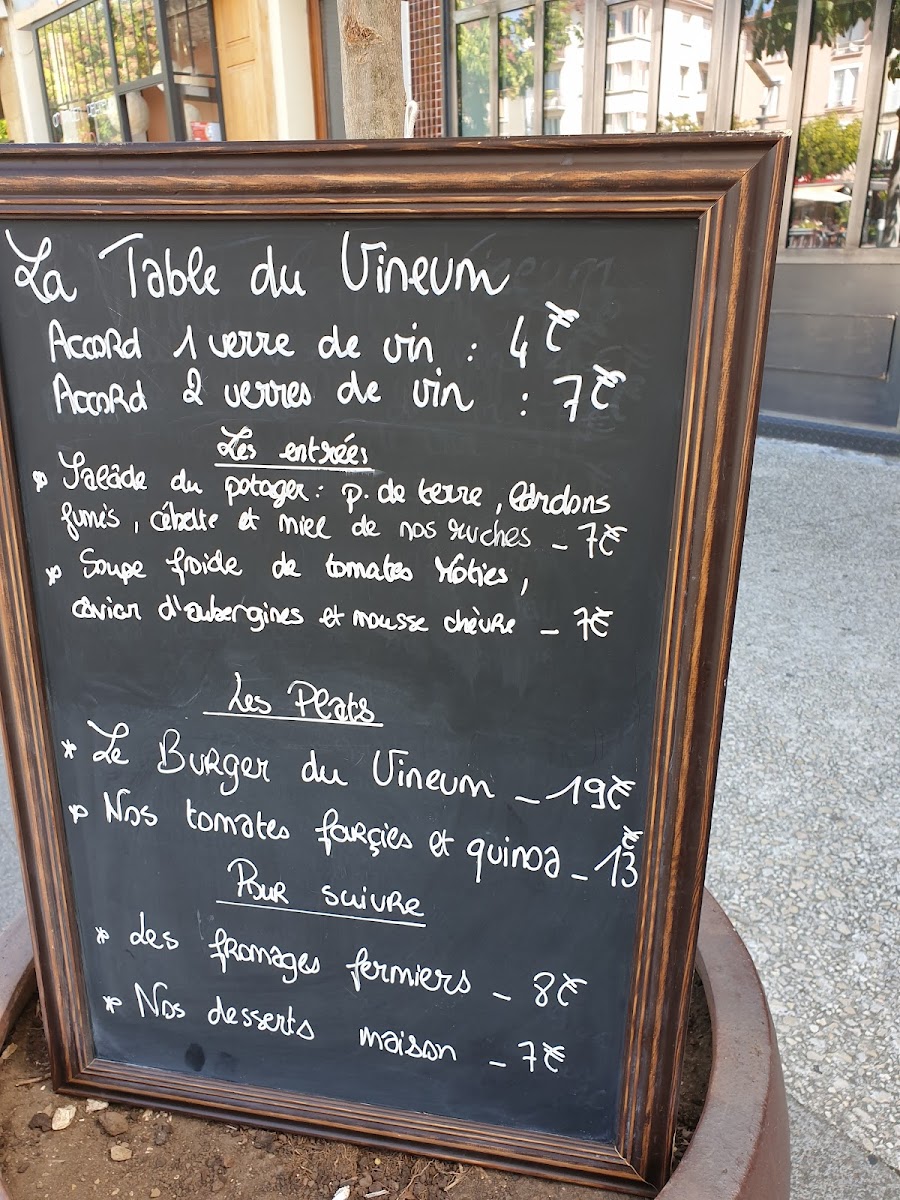 La Table du Vineum
Accord 1 verre de vin : 4€
Accord 2 verres de vin : 7€
Les entrées
* Salade du potager : p. de terre, lardons
fumés, cébette et miel de nos ruches - 7€
* Soupe froide de tomates rôties,
caviar d'aubergines et mousse chèvre - 7€
Les Plats
* Le Burger du Vineum - 19€
* Nos tomates farçies et quinoa - 13€
Pour suivre
* Les fromages fermiers - 8€
* Nos desserts maison - 7€